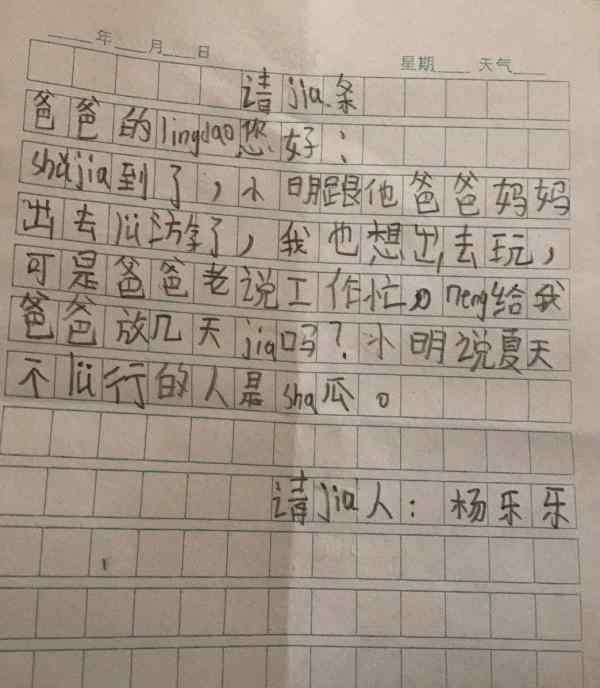 年 月 日 星期 天气
请jia条
爸爸的lingdao您好：
shǔjia到了，小明跟他爸爸妈妈
出去lǚ访学了，我也想出去玩，
可是爸爸老说工作忙。neng给我
爸爸放几天jia吗？小明说夏天
不lǚ行的人是sha瓜。
请jia人：杨乐乐